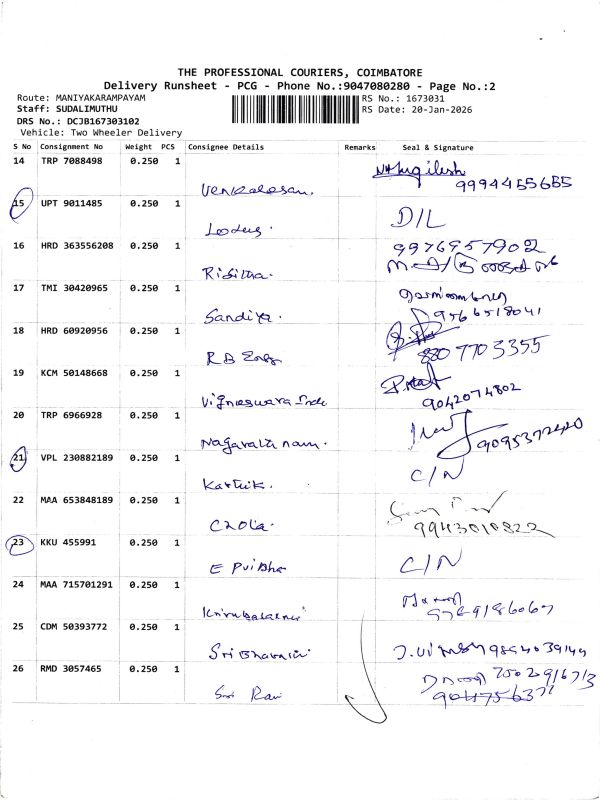 THE PROFESSIONAL COURIERS, COIMBATORE
Delivery Runsheet - PCG - Phone No.:9047080280 - Page No.:2
Route: MANIYAKARAMPAYAM
RS No.: 1673031
Staff: SUDALIMUTHU
RS Date: 20-Jan-2026
DRS No.: DCJB167303102
Vehicle: Two Wheeler Delivery
S No Consignment No Weight PCS Consignee Details Remarks Seal & Signature
14 TRP 7088498 0.250 1
Venkatesan. 9994455655
15 UPT 9011485 0.250 1 D/L
16 HRD 363556208 0.250 1 9976957902
17 TMI 30420965 0.250 1
Sandiya. 9566518041
18 HRD 60920956 0.250 1
R B Engg 8807703355
19 KCM 50148668 0.250 1
Vigneswara Inde 9042074802
20 TRP 6966928 0.250 1
Nagarathnam. 9095372420
21 VPL 230882189 0.250 1 C/N
Karthik.
22 MAA 653848189 0.250 1
Chola. 9943010822
23 KKU 455991 0.250 1
C/N
24 MAA 715701291 0.250 1
25 CDM 50393772 0.250 1
9894039144
26 RMD 3057465 0.250 1
Sri Ravi